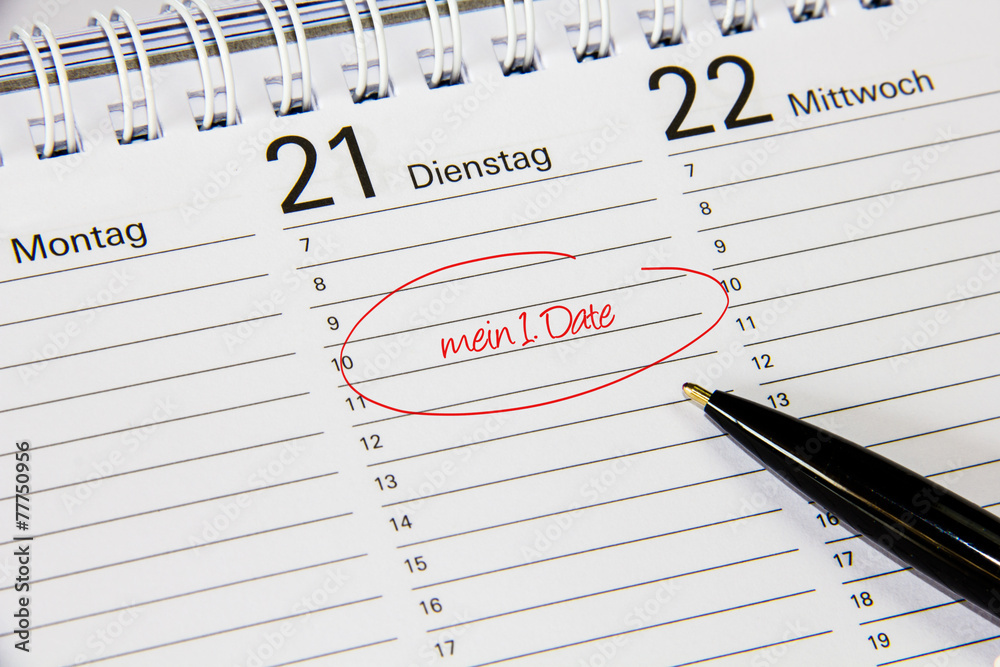 Montag
21 Dienstag
7
8
9
10
11
12
13
14
15
16
17
mein 1. Date
22 Mittwoch
7
8
9
10
11
12
13
16
17
18
19
Adobe Stock | #77750956